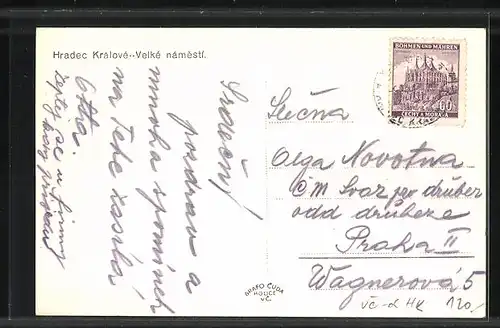 Hradec Králové--Velké náměstí.
Srdečný
pozdrav a
mnoho vzpomínek
na Tebe zasílá
Otta.
Zeptej se u firmy
kdy přijedou
BÖHMEN UND MÄHREN
60
ČECHY A MORAVA
Slečna
Olga Novotna
Č M Svaz pro družer
odd družeze
Praha II
Wagnerová 5
GRAFO ČUDA
HOLICE
VČ.
vč-d HK 120,-